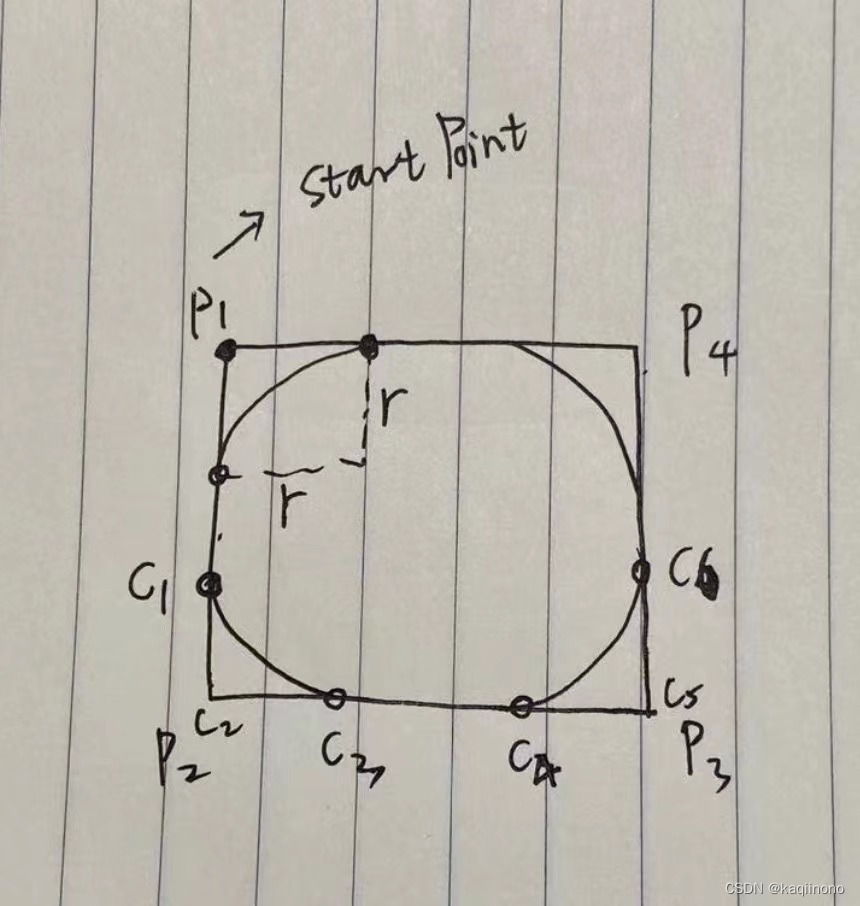 Start Point
P1
P4
r
r
C1
C6
C2
C5
P2
C3
C4
P3
CSDN @kaqiinono